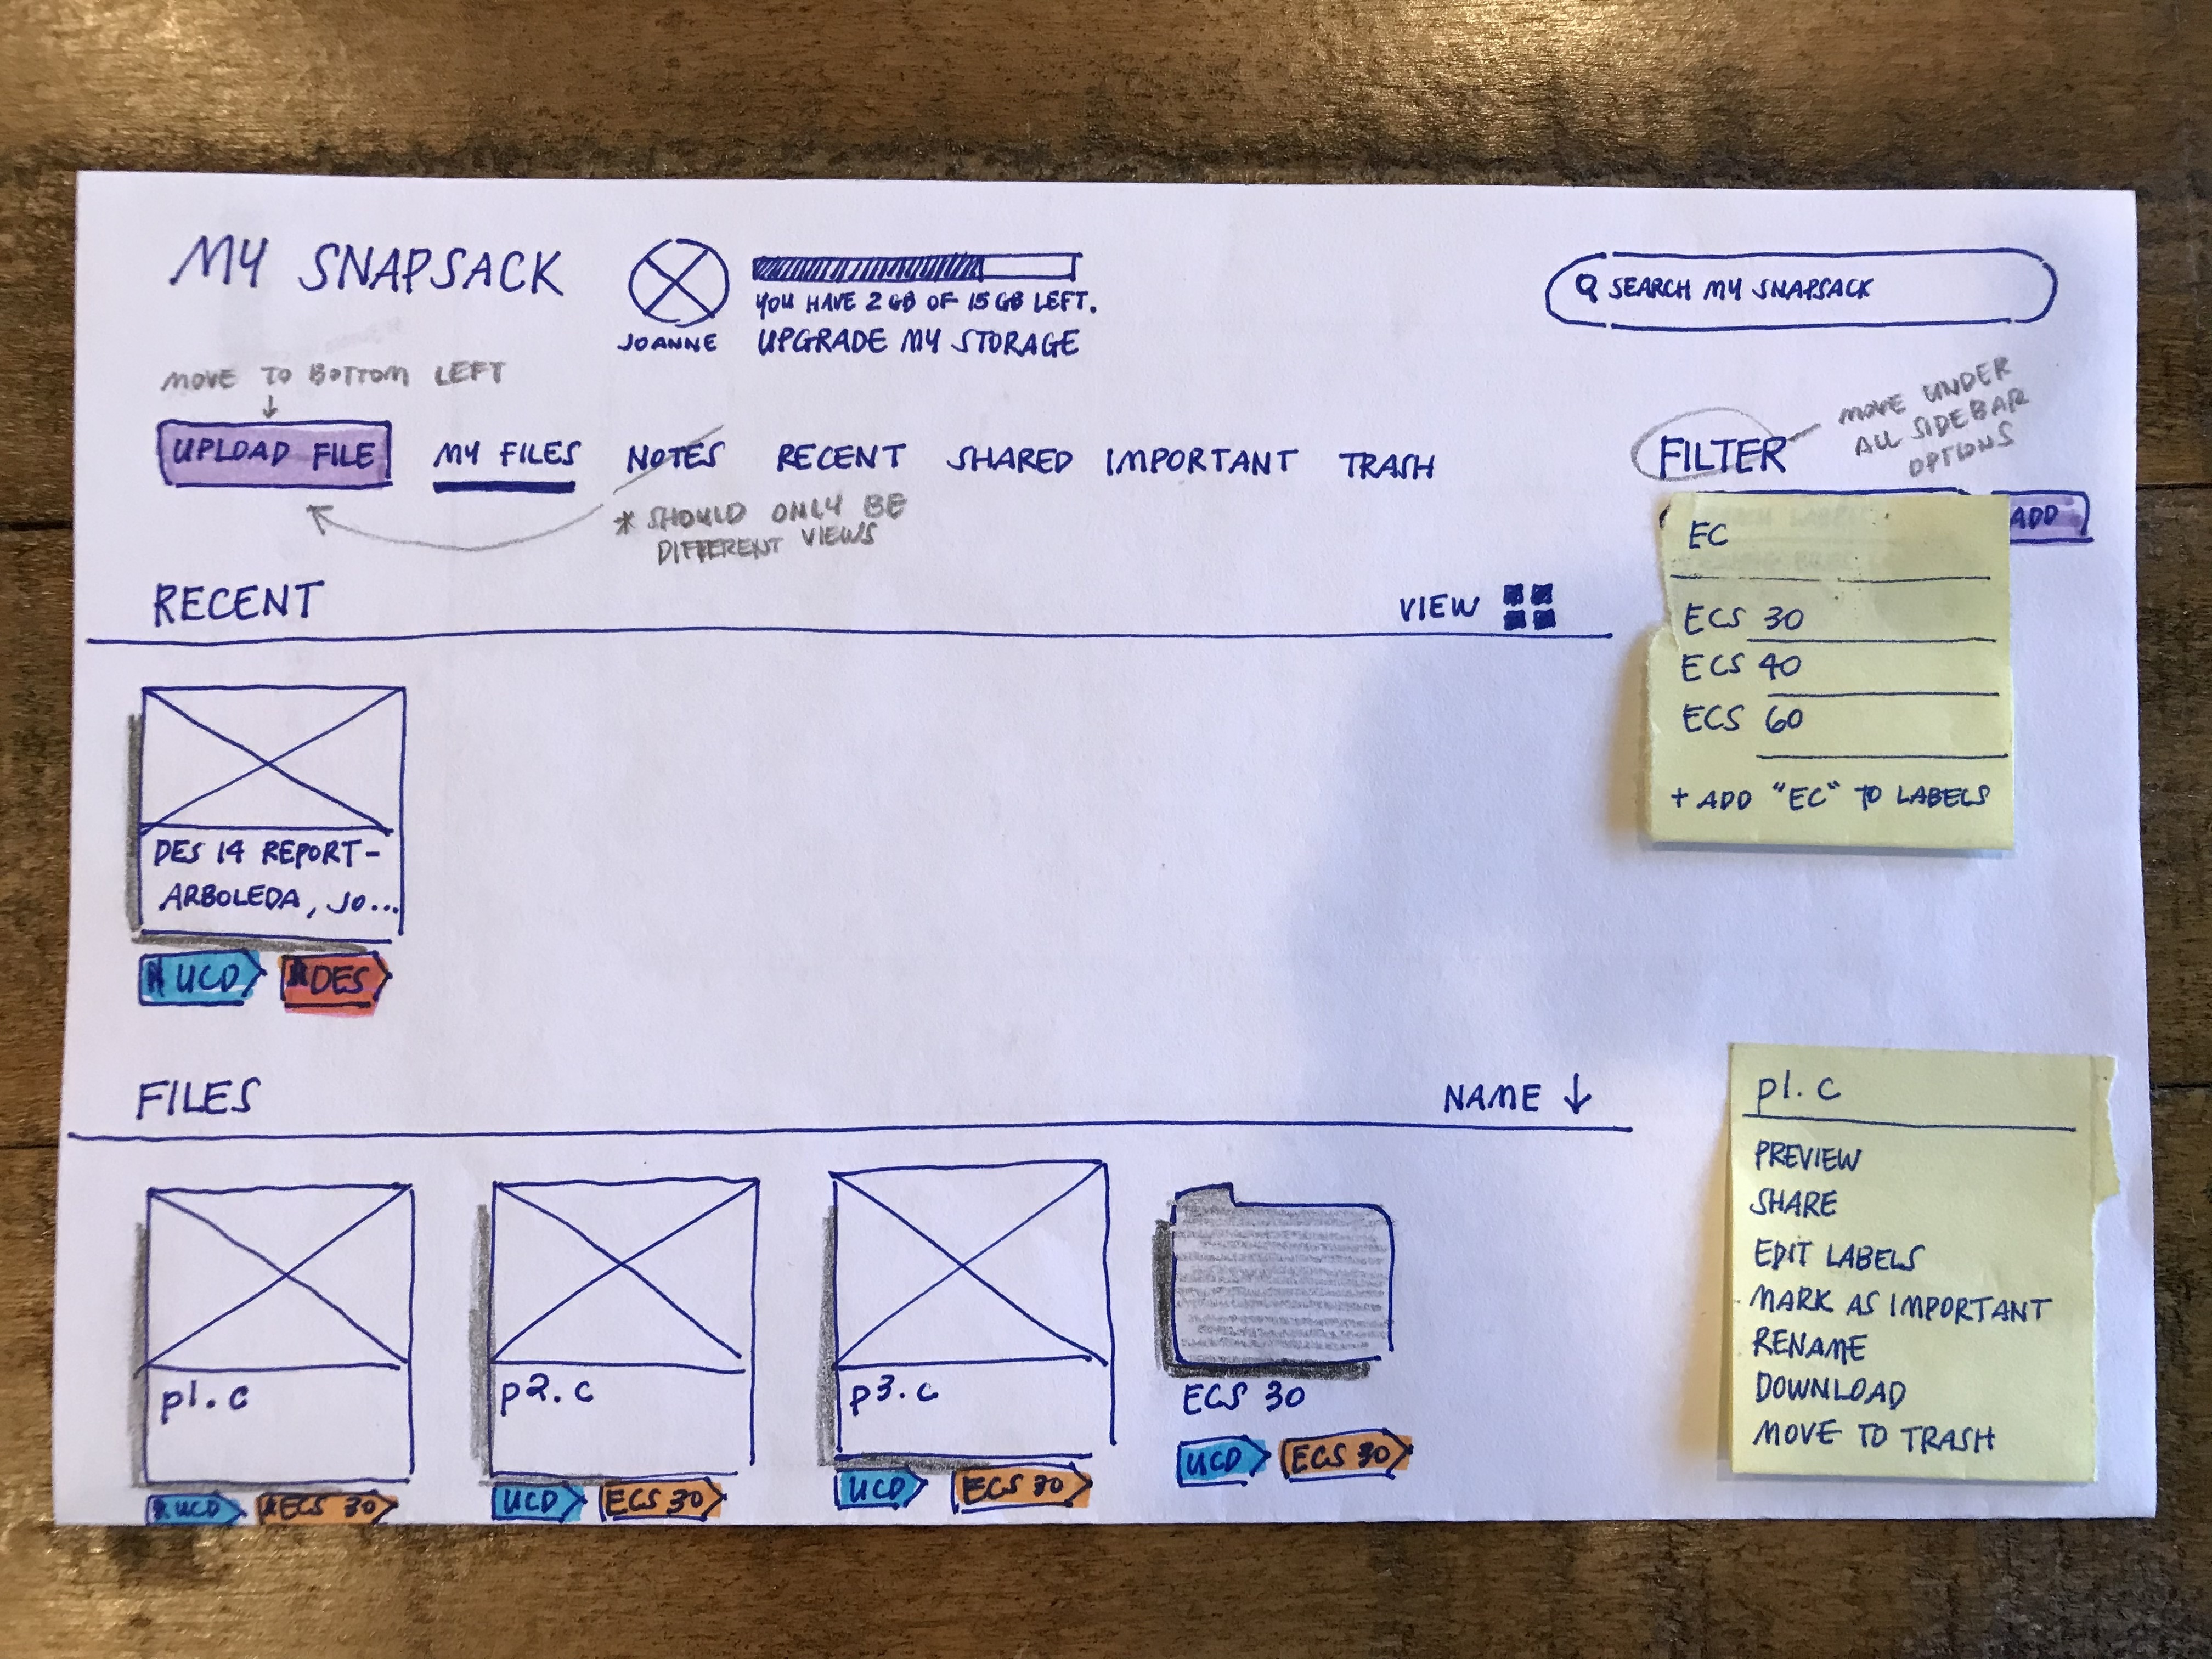 MY SNAPSACK
JOANNE
YOU HAVE 2 GB OF 15 GB LEFT.
UPGRADE MY STORAGE
SEARCH MY SNAPSACK
MOVE TO BOTTOM LEFT
UPLOAD FILE
MY FILES NOTES RECENT SHARED IMPORTANT TRASH
* SHOULD ONLY BE
DIFFERENT VIEWS
FILTER
MOVE UNDER
ALL SIDEBAR
OPTIONS
ADD
EC
ECS 30
ECS 40
ECS 60
+ ADD "EC" TO LABELS
RECENT
VIEW
DES 14 REPORT-
ARBOLEDA, JO...
UCD DES
FILES
NAME ↓
p1.c
UCD ECS 30
p2.c
UCD ECS 30
p3.c
UCD ECS 30
ECS 30
UCD ECS 30
p1.c
PREVIEW
SHARE
EDIT LABELS
MARK AS IMPORTANT
RENAME
DOWNLOAD
MOVE TO TRASH